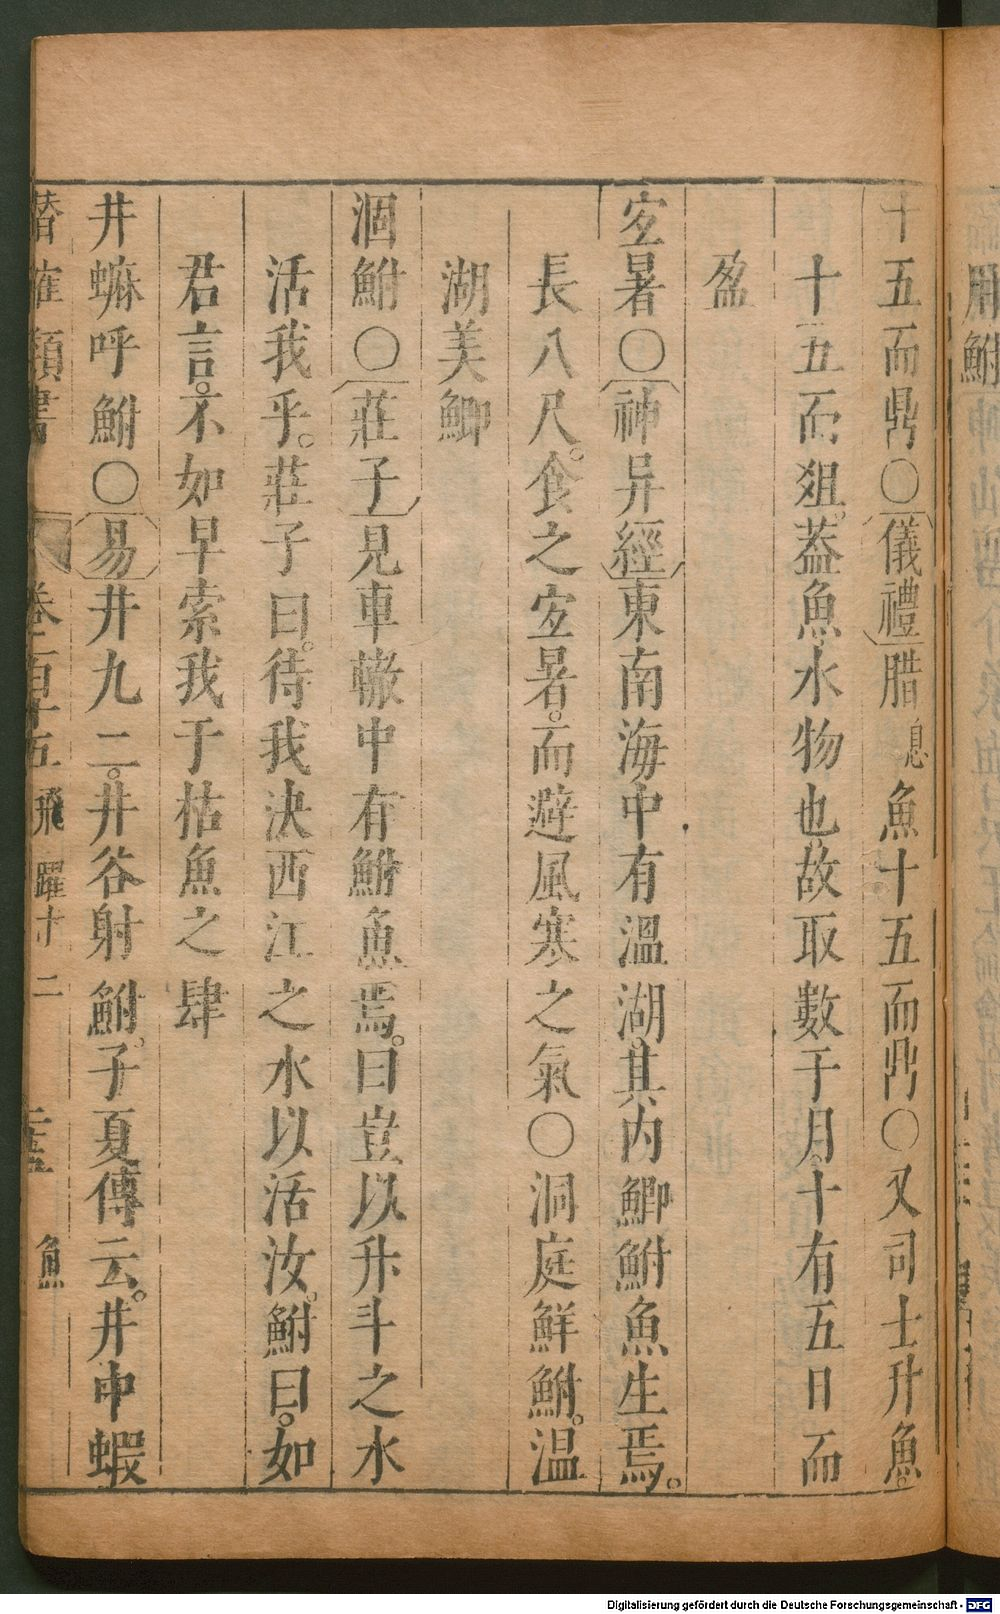 十五而鼎○儀禮腊息魚十五而鼎○又司士升魚。
十五而俎。葢魚水物也。故取數于月十有五日而
盈
宜暑○神异經東南海中有溫湖。其内鯽鮒魚生焉。
長八尺。食之宜暑。而避風寒之氣○洞庭鮮鮒。温
湖美鯽
涸鮒○莊子見車轍中有鮒魚焉。曰豈以升斗之水
活我乎。莊子曰。待我決西江之水以活汝。鮒曰。如
君言。不如早索我于枯魚之肆
井蟆呼鮒○易井九二。井谷射鮒。子夏傳云。井中蝦
潛確類書 卷一百十五 飛躍十二 魚
Digitalisierung gefördert durch die Deutsche Forschungsgemeinschaft - DFG